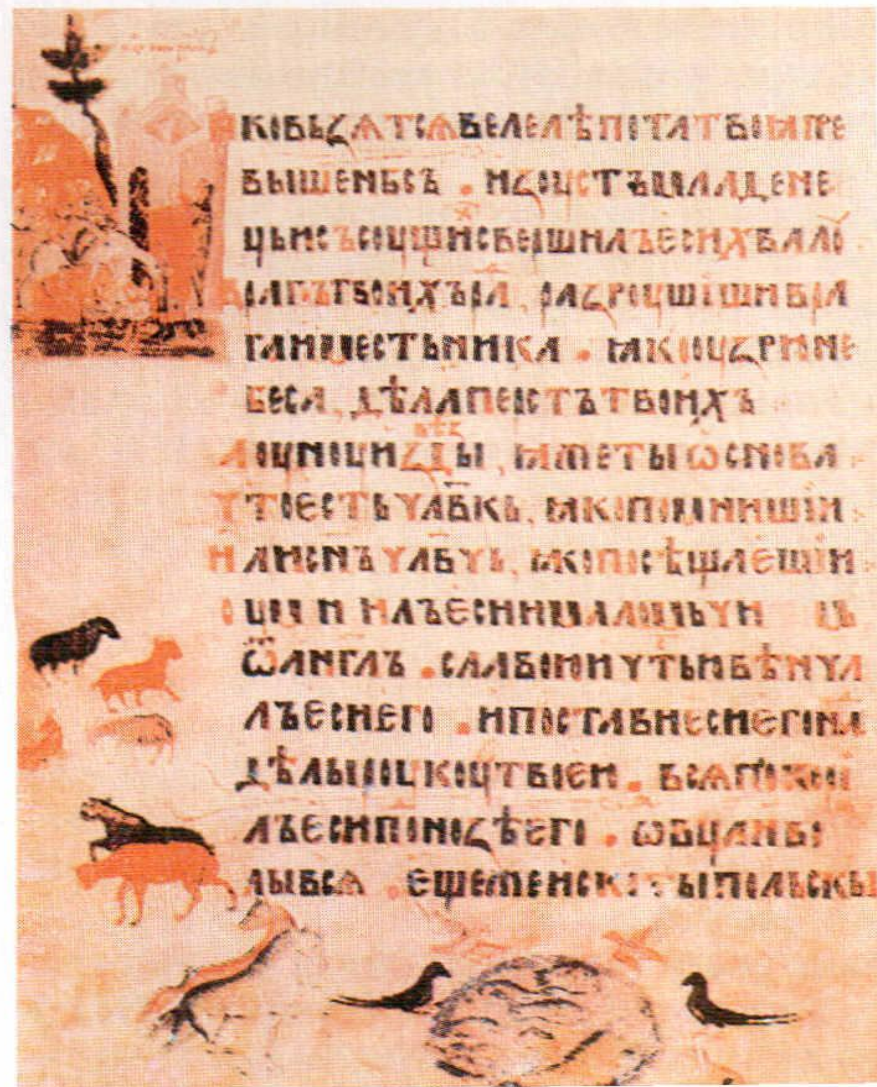 ꙗковьꙁѧтсѧвелелѣпотатвоꙗпре
вышенбсъ . иꙁоустъмладене
цьисъсоущисвершилъесихвало
врагътвоихъра, раꙁроушишивра
гаиместьника . ꙗкооуꙁрюне
беса, дѣлаперстътвоихъ
лоуноуиꙁды, ꙗжетыѡснова
чтоестьчлвкъ, ꙗкопомнишии
илиснъчлвчь, ꙗкопосѣщаешии
оумнилъесинималомьчи мь
ѿанглъ . славоюичтьювѣнча
лъесиего . ипоставиесиегона
дѣлыроукоутвоею . всѧпокои
лъесипоноꙁѣего . ѡвцаиво
лывсѧ . ещежеискотыпольскы